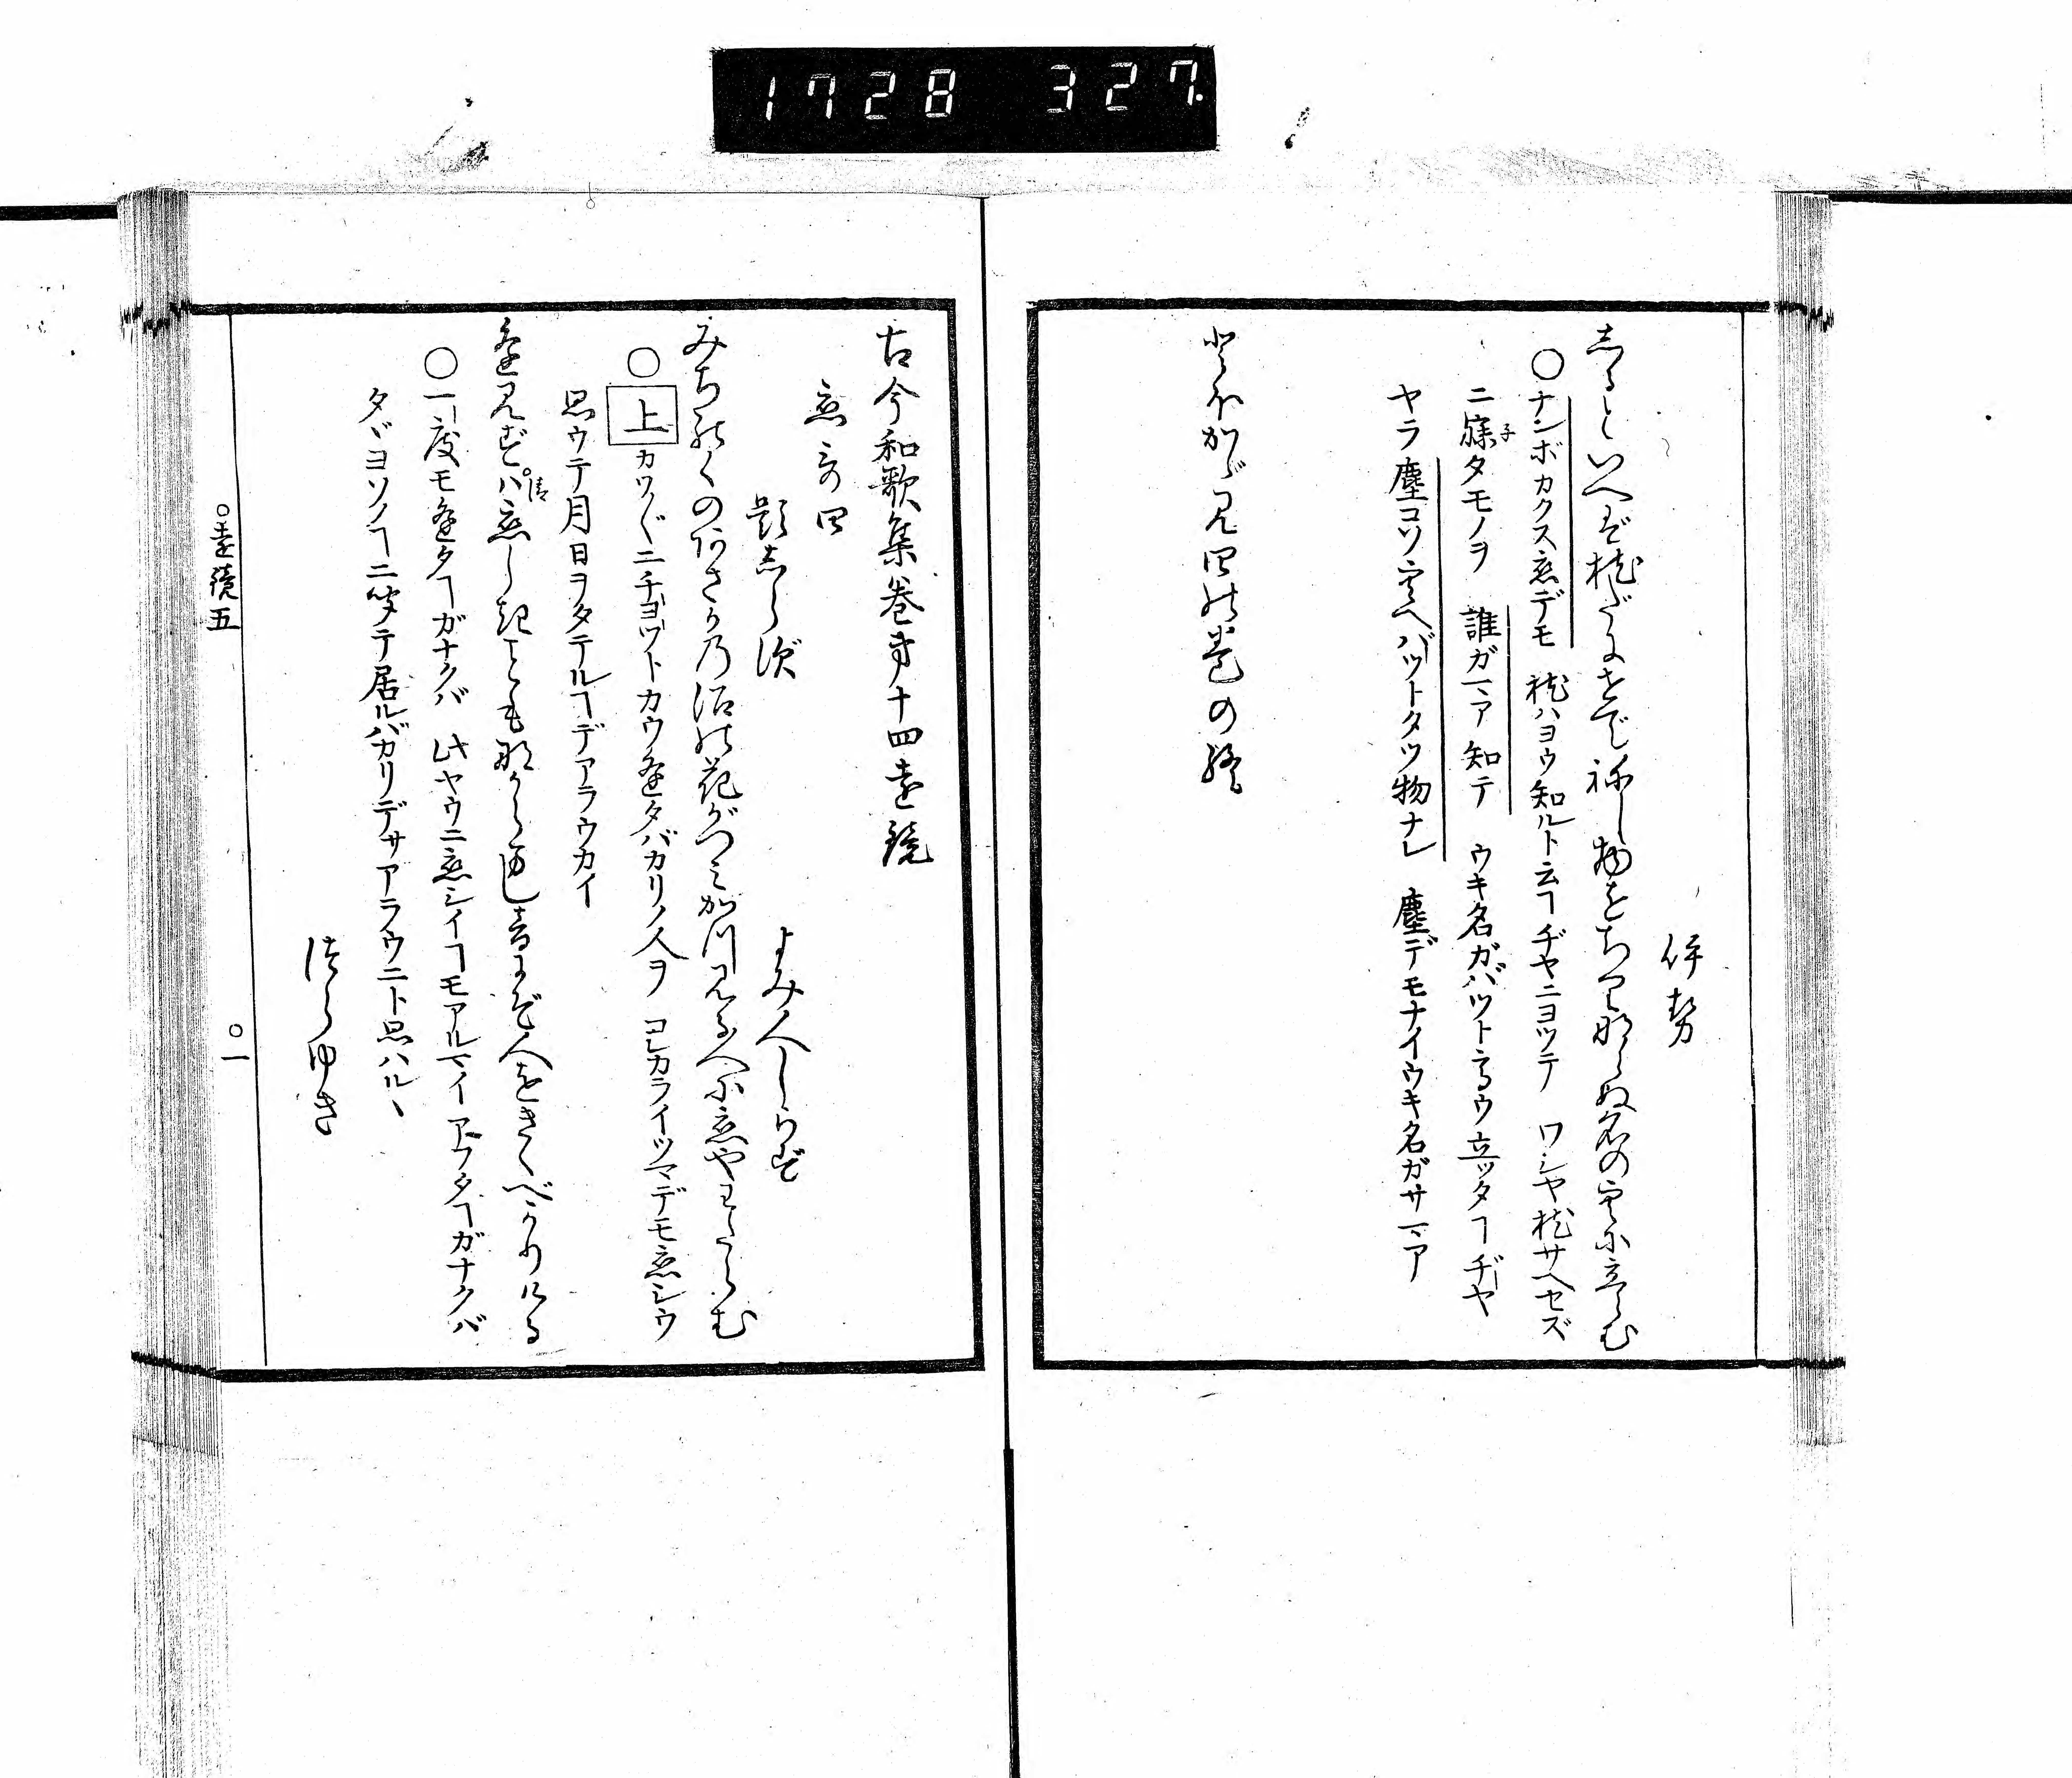 1728 327
伊勢
しるといへば枕だにせで ねし物をちりならぬ名の空に立らむ
○ナンボカクス恋デモ 枕ハヨウ知ルト云ヿヂヤニヨツテ ワシヤ枕サヘセズ
ニ寐タモノヲ 誰ガマア知テ ウキ名ガバツト高ウ立ツタヿヂヤ
子
ヤラ 塵コソ空ヘバツトタツ物ナレ 塵デモナイウキ名ガサマア
とほかゞ見四の巻の終
古今和歌集巻第十四遠鏡
恋歌四
題しらず
よみ人しらず
みちのくのあさかの沼の花がつみかつ見る人に恋やわたらむ
○上カワ〴〵ニチヨツトカウ逢タバカリノ人ヲ コレカライツマデモ恋シウ
思ウテ月日ヲタテルヿデアラウカイ
逢見ずハ恋しきこともなからまし音にぞ人をきくべかりける
清
○一度モ逢タヿガナクバ 此ヤウニ恋シイヿモアルマイ アフタヿガナクバ
タヾヨソノヿニ聞テ居ルバカリデサアラウニト思ハルヽ
つらゆき
○遠鏡五
○一